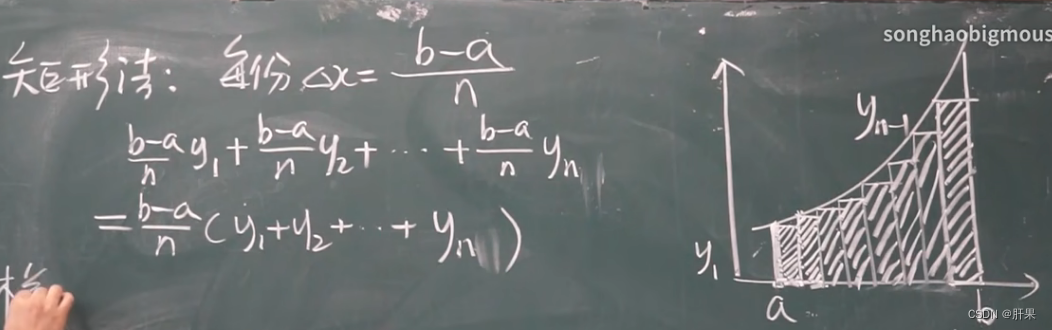 songhaobigmous
矩形法: 每份 Δx = \frac{b-a}{n}
\frac{b-a}{n} y_1 + \frac{b-a}{n} y_2 + ⋯ + \frac{b-a}{n} y_n
= \frac{b-a}{n} (y_1 + y_2 + ⋯ + y_n)
y_{n-1}
y_1
a b
CSDN @肝果